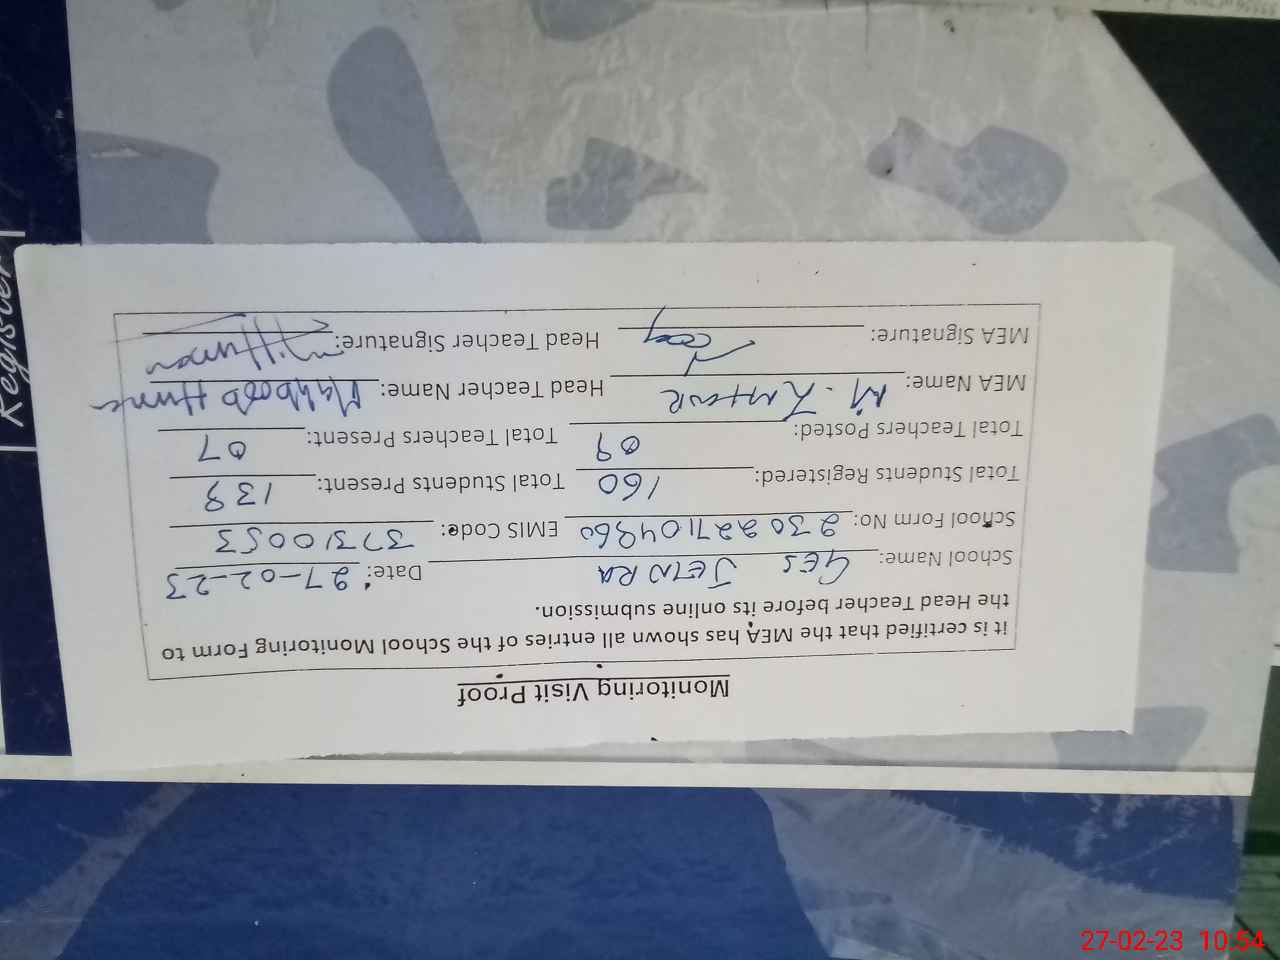 Monitoring Visit Proof
it is certified that the MEA has shown all entries of the School Monitoring Form to
the Head Teacher before its online submission.
School Name: GES JETNRA Date: 27-02-23
School Form No: 230227104960 EMIS Code: 37310053
Total Students Registered: 160 Total Students Present: 139
Total Teachers Posted: 09 Total Teachers Present: 07
MEA Name: M. Head Teacher Name: Mahboob
MEA Signature: Head Teacher Signature:
Register
27-02-23 10:54